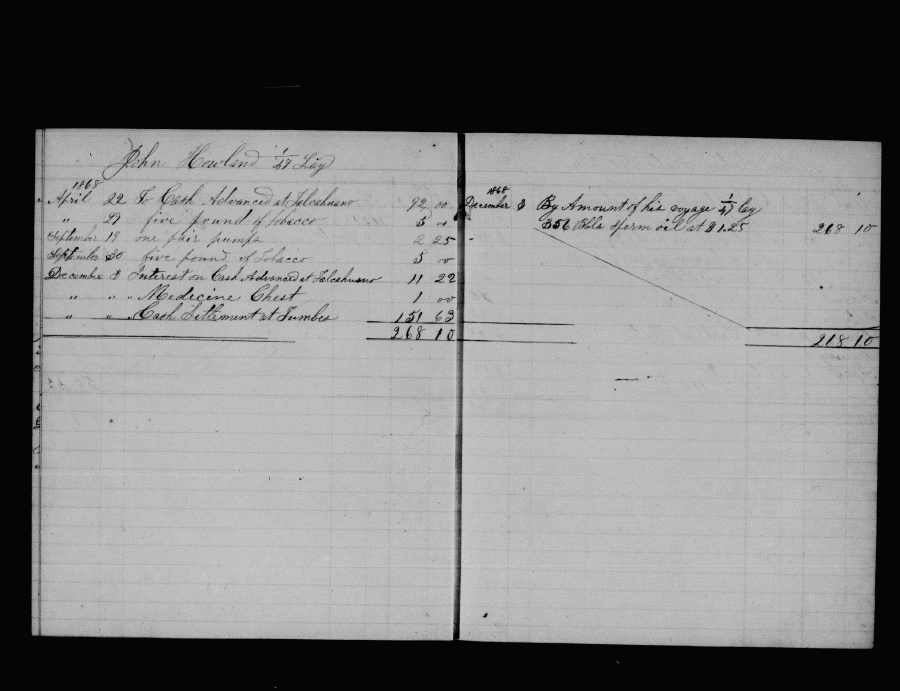 John Howland 1/47 Lay
1868
April 22 To Cash Advanced at Talcahuano 92 00
" 27 five pound of tobacco 5 00
September 19 one pair pumps 2 25
September 30 five pound of tobacco 5 00
December 3 Interest on Cash Advanced at Talcahuano 11 22
" " " Medicine Chest 1 00
" " " Cash Settlement at Tumbes 151 63
268 10
1868
December 3 By Amount of his voyage 1/47 lay
356 Bbls Sperm oil at $1.25 268 10
268 10